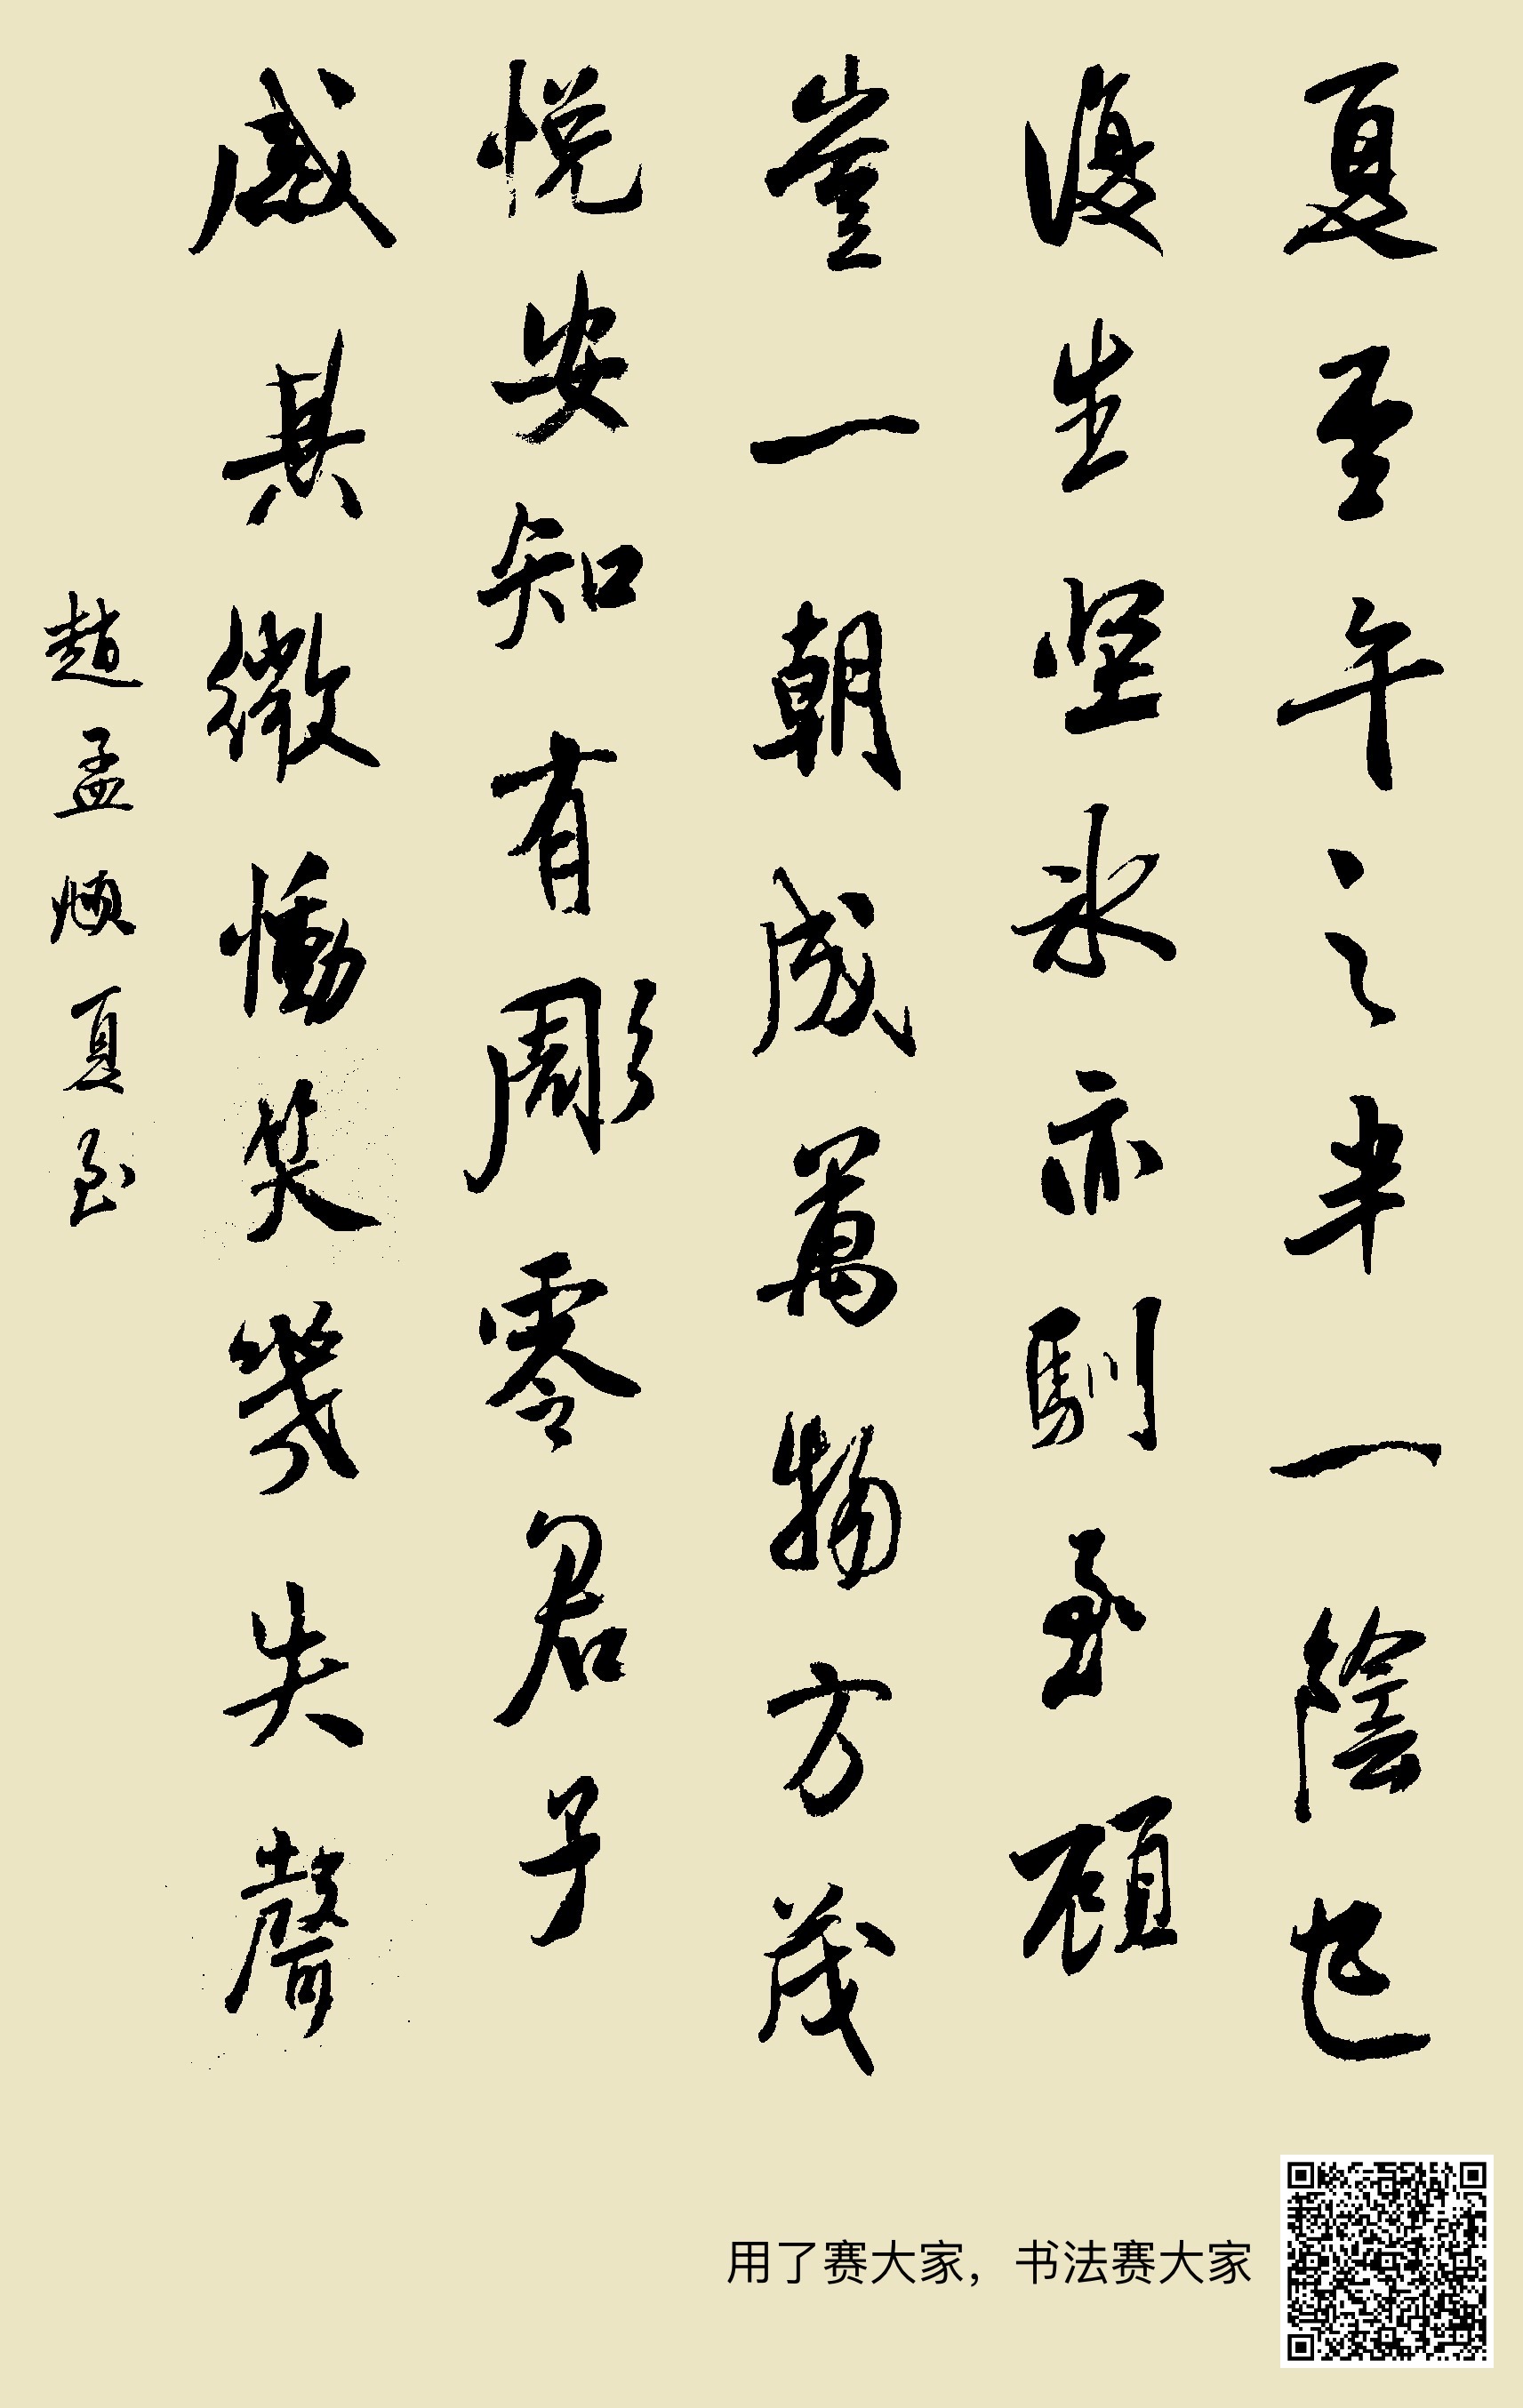 夏至午之半一陰已
復生坚冰亦馴至顧
豈一朝成萬物方茂
悦安知有彫零君子
感其微慟笑幾失聲
趙孟頫夏至
用了赛大家，书法赛大家